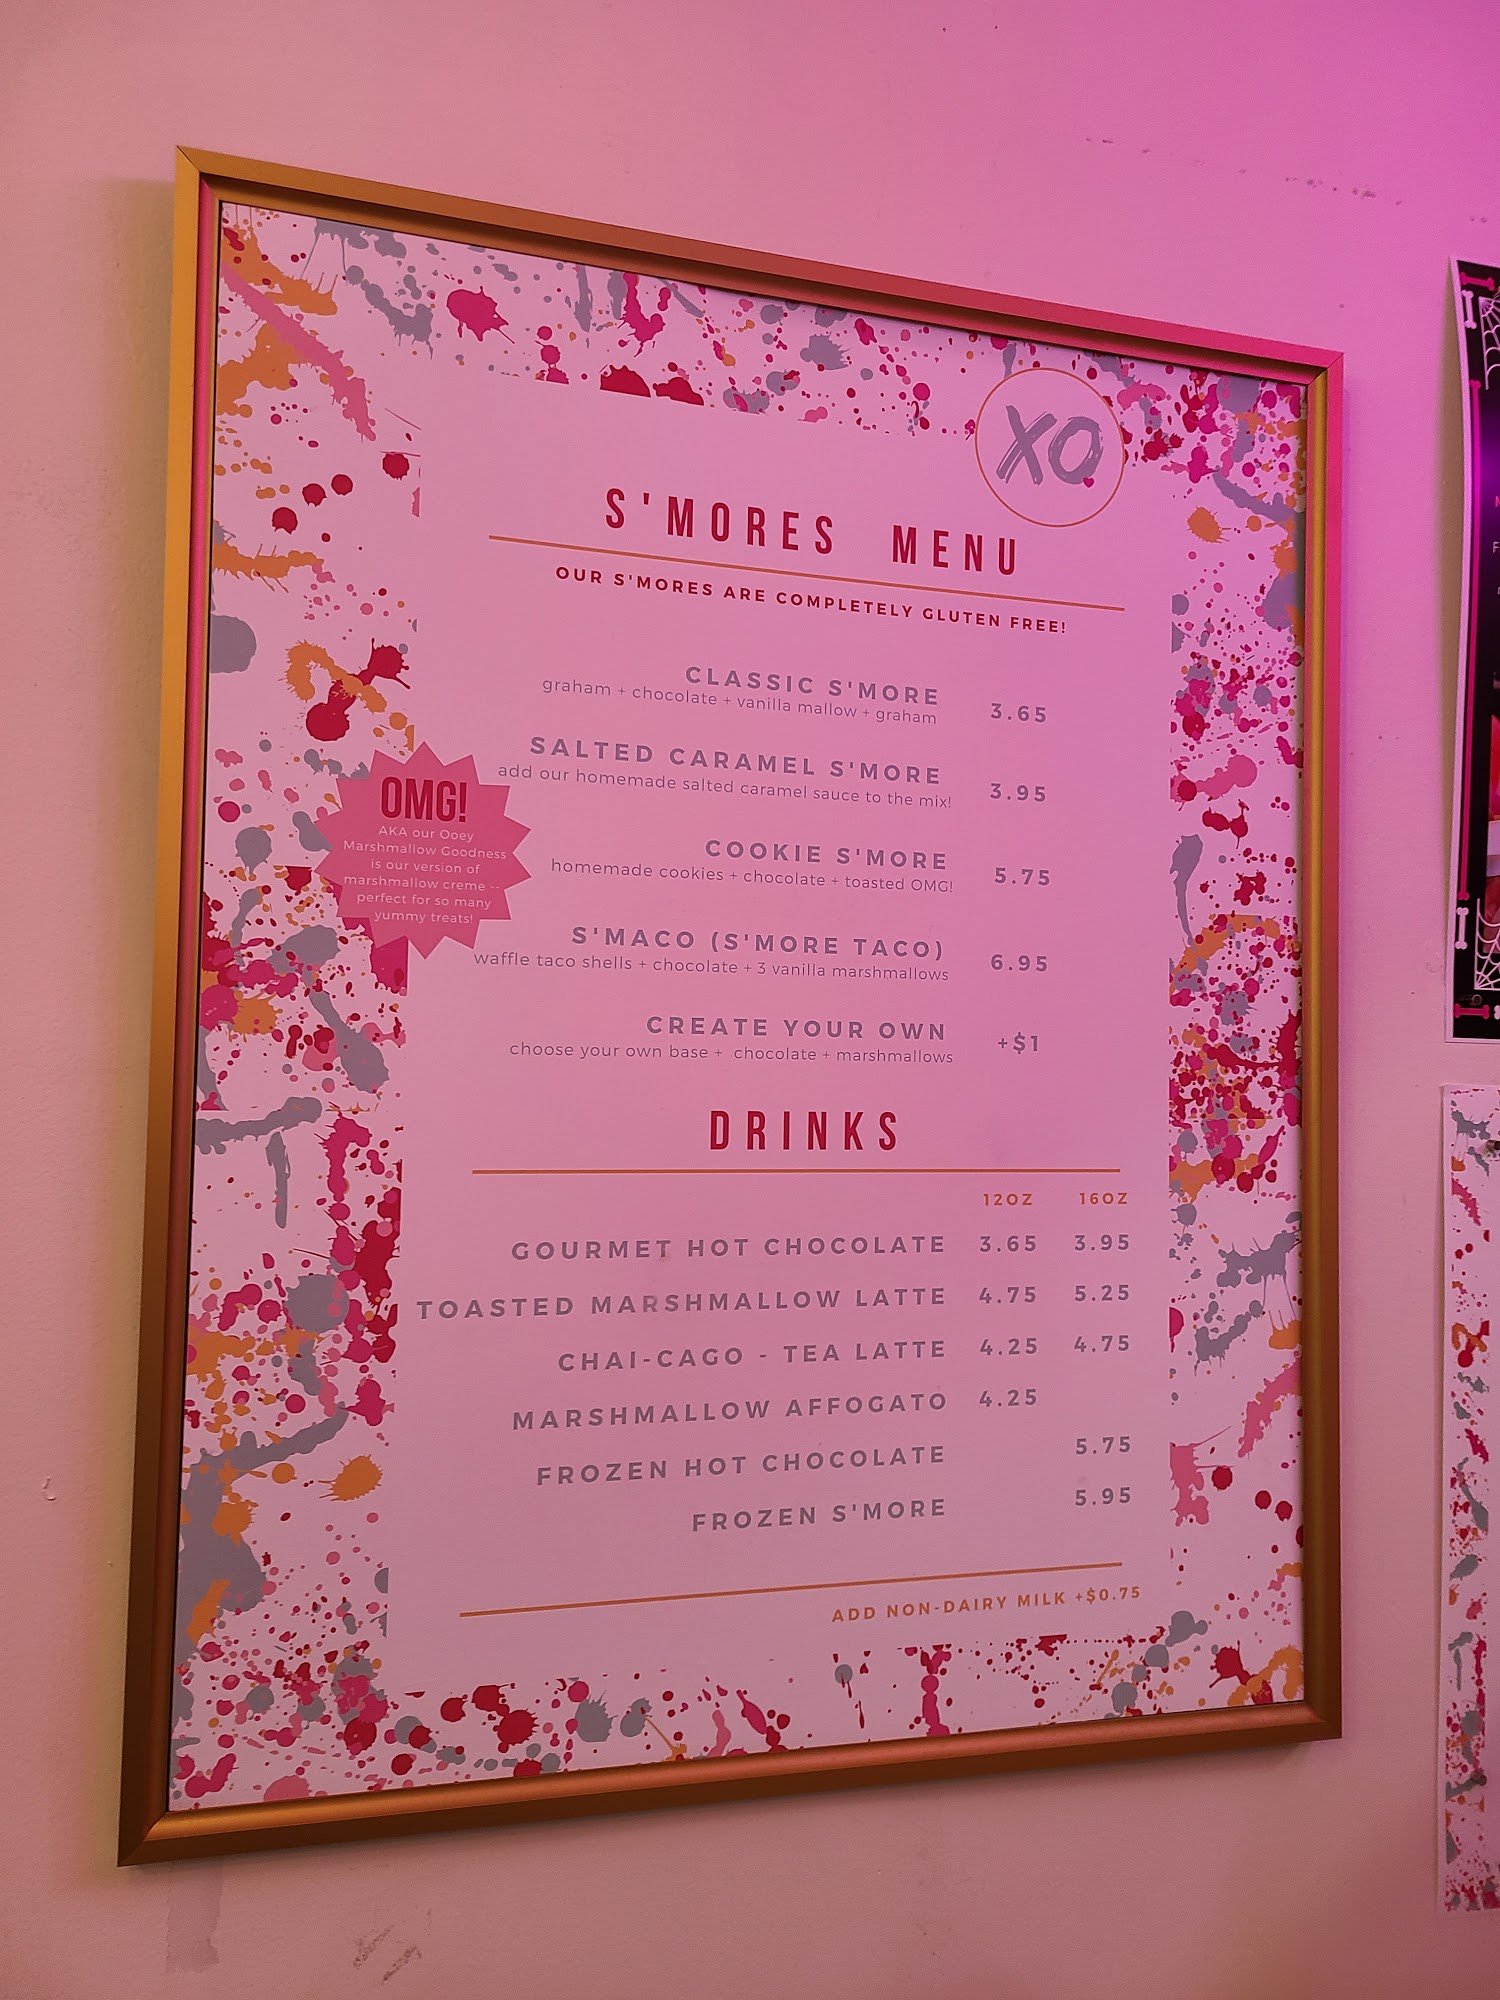 XO
S'MORES MENU
OUR S'MORES ARE COMPLETELY GLUTEN FREE!
CLASSIC S'MORE 3.65
graham + chocolate + vanilla mallow + graham
SALTED CARAMEL S'MORE 3.95
add our homemade salted caramel sauce to the mix!
OMG!
AKA our Ooey
Marshmallow Goodness
is our version of
marshmallow creme --
perfect for so many
yummy treats!
COOKIE S'MORE 5.75
homemade cookies + chocolate + toasted OMG!
S'MACO (S'MORE TACO) 6.95
waffle taco shells + chocolate + 3 vanilla marshmallows
CREATE YOUR OWN +$1
choose your own base + chocolate + marshmallows
DRINKS
12OZ 16OZ
GOURMET HOT CHOCOLATE 3.65 3.95
TOASTED MARSHMALLOW LATTE 4.75 5.25
CHAI-CAGO - TEA LATTE 4.25 4.75
MARSHMALLOW AFFOGATO 4.25
FROZEN HOT CHOCOLATE 5.75
FROZEN S'MORE 5.95
ADD NON-DAIRY MILK +$0.75